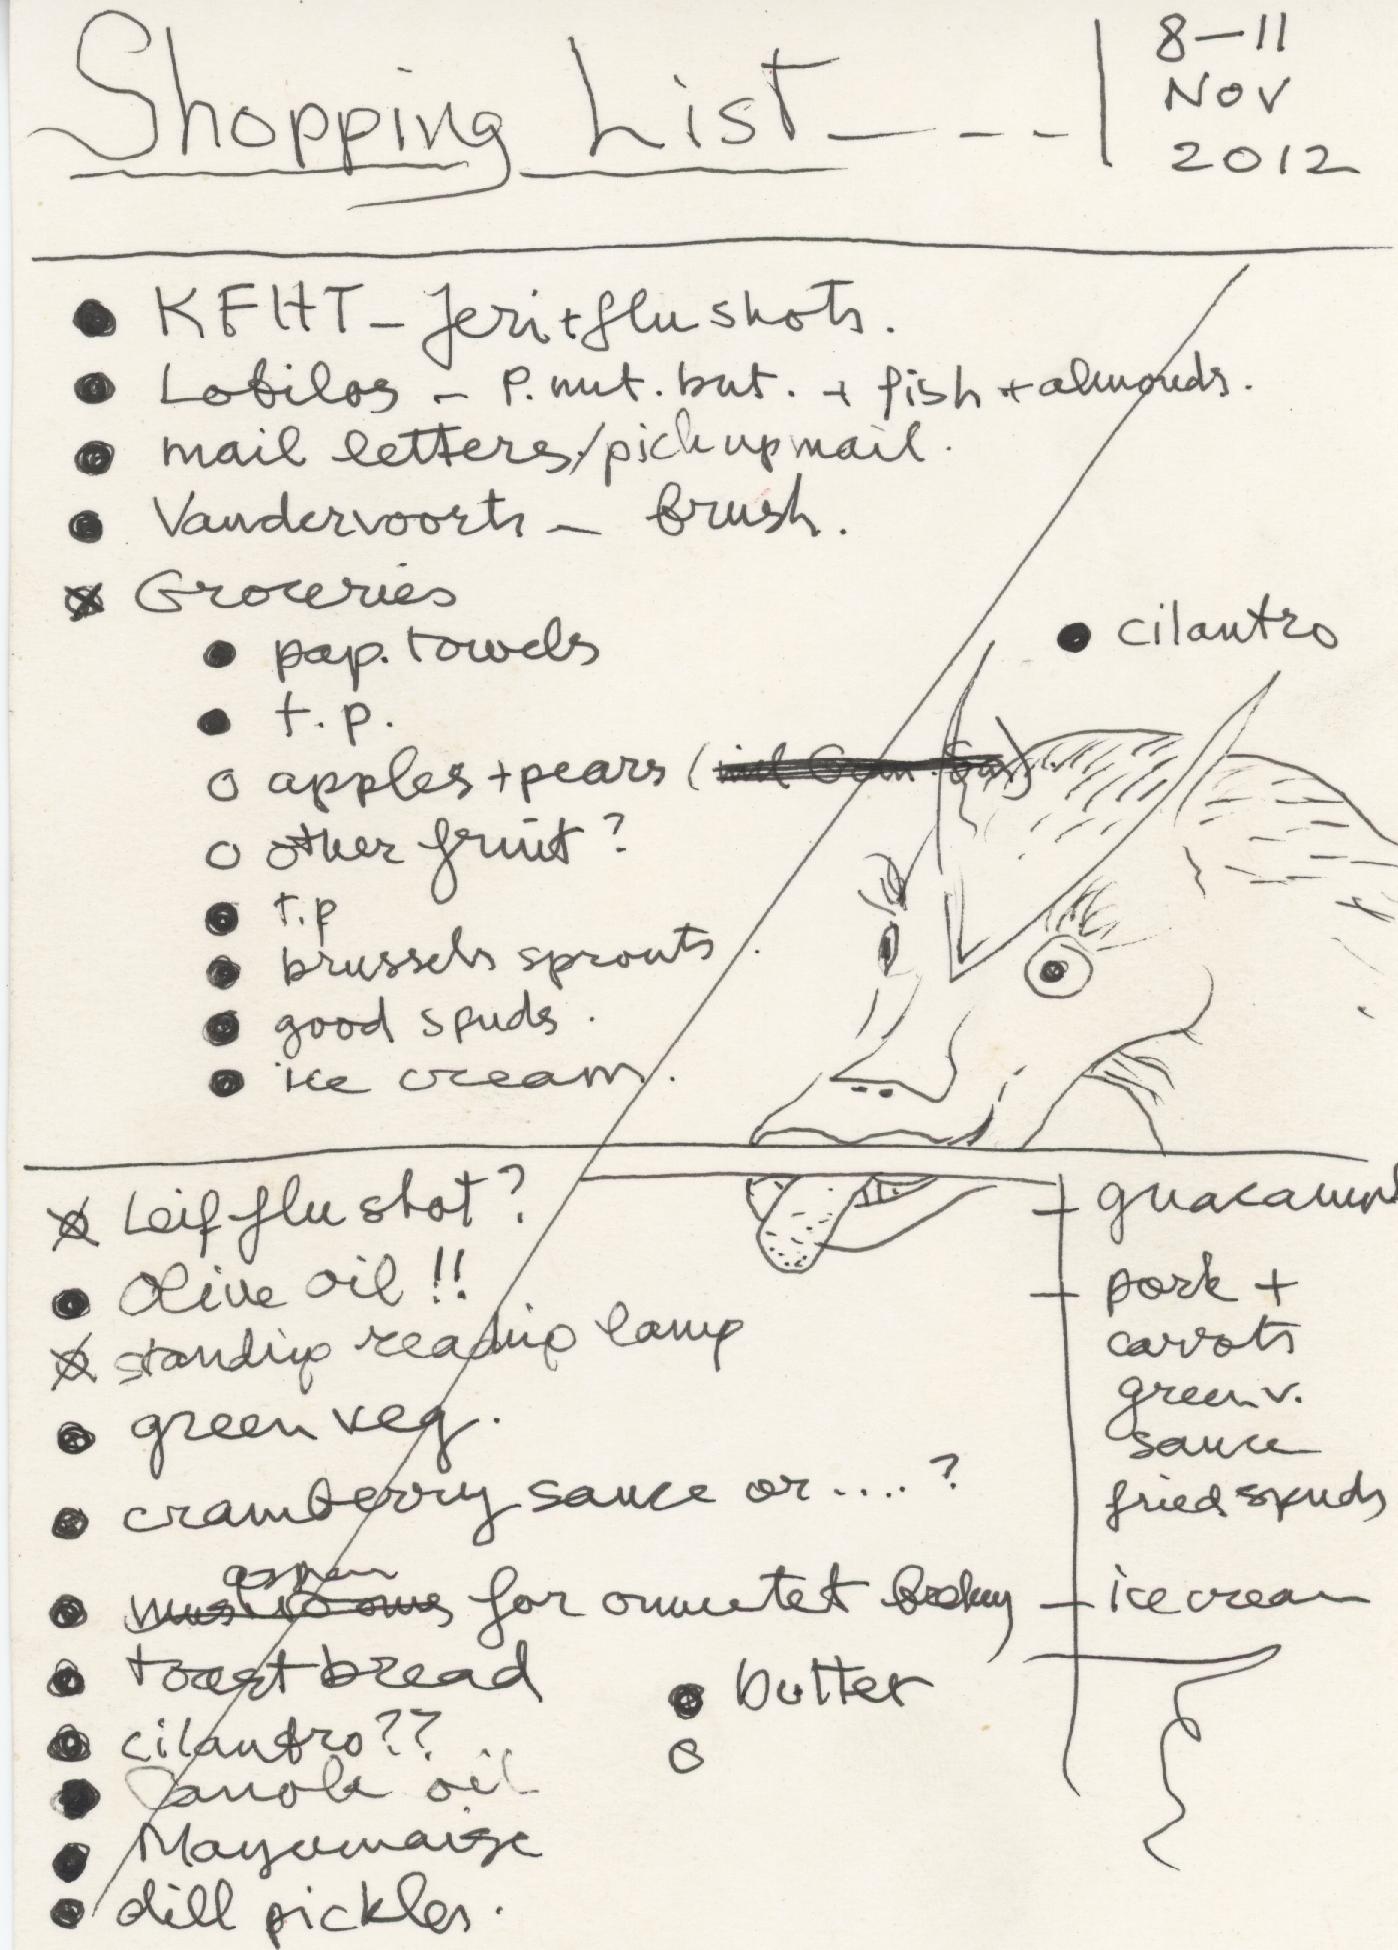 Shopping List
8–11
Nov
2012
KFHT – Jeri + flu shots.
Loblos – P. nut. but. + fish + almonds.
mail letters/pick up mail.
Vandervoorts – brush.
Groceries
pap. towels
cilantro
t.p.
apples + pears (
other fruit?
t.p
brussels sprouts
good spuds.
ice cream.
Leif flu shot?
Olive oil!!
standing reading lamp
green veg.
cramberry sauce or....?
for ommotet
toast bread
butter
cilantro??
Canola oil
Mayonaise
dill pickles.
pork +
carrots
green v.
sauce
fried spuds
– ice cream